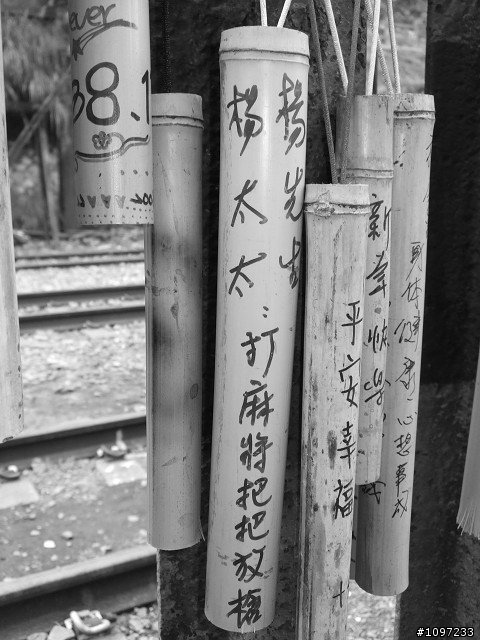 ever
38.1
楊先生
楊太太:打麻將把把放槍
平安幸福
新年快樂
身体健康 心想事成
#1097233